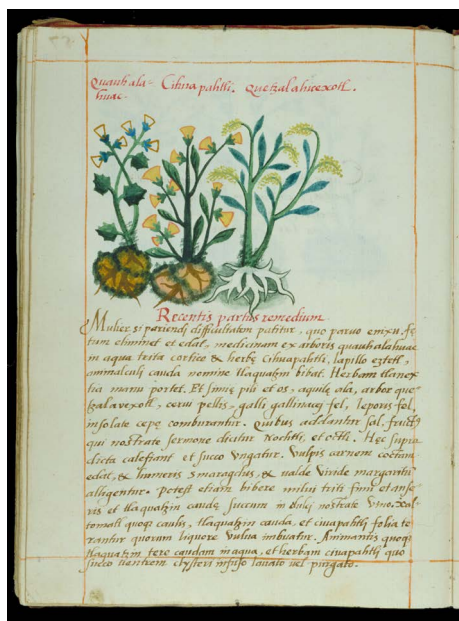 Quauhala-. Cihuapahtli. Quetzalahuexotl.
huac.
Recentis partus remedium
Mulier si pariendi difficultatem patitur, quo paruo enixu fę
tum eliminet et edat, medicinam ex arboris quauhalahuac
in aqua trita cortice & herbę Cihuapahtli, lapillo eztetl,
animalculi cauda nomine tlaquatzin bibat. Herbam tlanex
tia manu portet. Et simię pili et os, aquilę ala, arbor que
tzalavexotl, cerui pellis, galli gallinacei fel, leporis fel,
insolate cepę comburantur. Quibus addantur sal, fructus
qui nostrate sermone dicitur Nochtli, et octli. Hęc supra
dicta calefiant et succo ungatur. Vulpis carnem coctam
edat, & humeris smaragdus, & valde viride margaritum
alligentur. potest etiam bibere milui triti fimi et anse
ris et tlaquatzin caudę succum in dulci nostrate vino. Xal
tomatl quoque caulis, tlaquatzin cauda, et ciuapahtli folia te
rantur quorum liquore vulua imbuatur. Animantis quoque
tlaquatzin tere caudam in aqua, et herbam ciuapahtli quo
succo uentrem clysteri infuso lauato uel purgato.